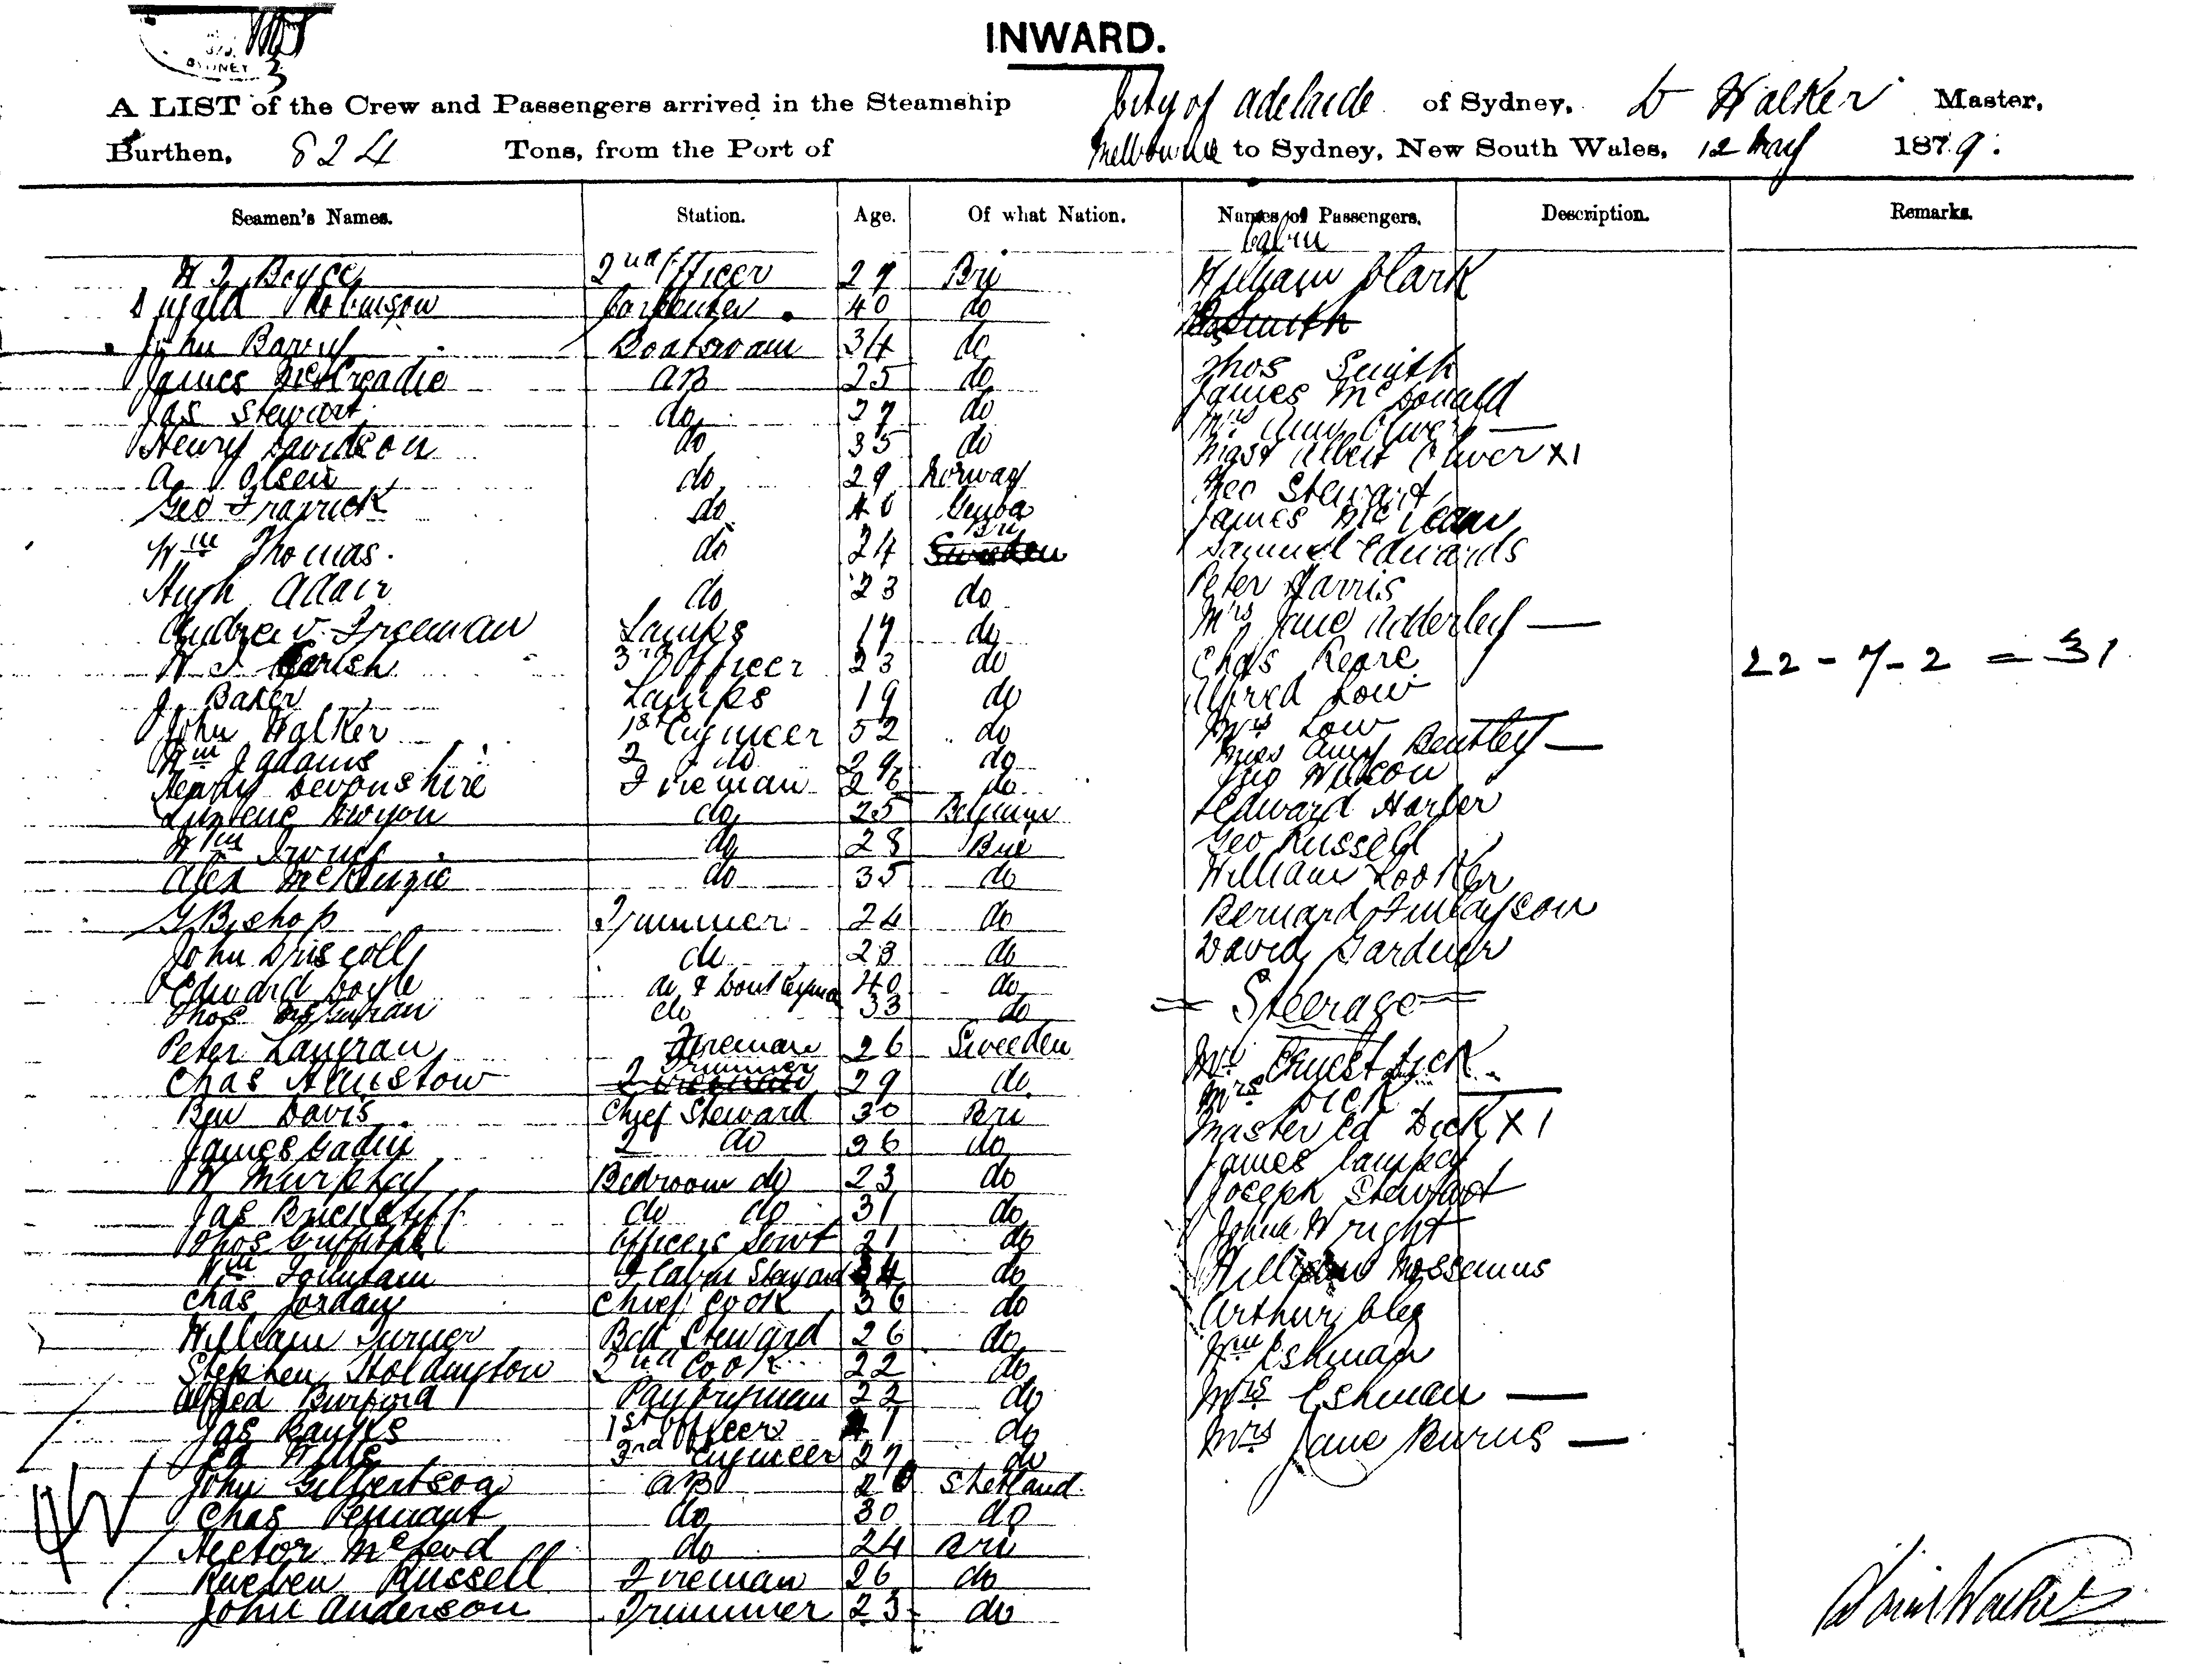 SYDNEY
INWARD.
A LIST of the Crew and Passengers arrived in the Steamship City of Adelaide of Sydney, D Walker Master,
Burthen, 824 Tons, from the Port of Melbourne to Sydney, New South Wales, 12 May 1879.
Seamen's Names. Station. Age. Of what Nation. Names of Passengers. Description. Remarks.
Cabin
W Boyce 2nd Officer 29 Bri William Clark
Dugald Robinson Carpenter 40 do Smith
John Barry Boatswain 34 do Thos Smith
James McCreadie AB 25 do James McDonald
Jas Stewart do 27 do Mrs Ann Oliver —
Henry Davidson do 35 do Mast Albert Oliver X1
A Olsen do 29 Norway Geo Stewart
Geo do 40 James McLean
Wm Thomas do 24 Bri Sweeden Samuel Edwards
Hugh Adair do 23 do Peter Harris
Andrew Freeman Lamps 17 do Mrs Jane Adderley —
W 3rd Officer 23 do Chas 22 - 7 - 2 = 31
J Baker Lamps 19 do Alfred Low
John Walker 1st Engineer 52 do Mrs Low
Wm J Adams 2 do 29 do Miss Amy Bentley —
Henry Devonshire Fireman 26 do Jno Wilson
do 25 Belgium Edward Harber
Wm do 28 Bri Geo Russell
Alex McKenzie do 35 do William Looker
G Bishop Trimmer 24 do Bernard Finlayson
John Driscoll do 23 do David Gardner
Edward Doyle do & 40 do
Thos do 33 do = Steerage =
Peter Fireman 26 Sweeden Mr Ernest Dick
Chas Trimmer Fireman 29 do Mrs Dick —
Ben Davis Chief Steward 30 Bri Master Ed Dick X 1
James 2 do 36 do James
W Murphy Bedroom do 23 do Joseph Stewart
Jas do do 31 do John Wright
Thos Griffiths Officers Servt 21 do William
Wm F Cabin Steward 34 do Arthur
Chas Jordan Chief Cook 36 do
William Turner Steward 26 do Wm Eshman
Stephen Holdington 2nd Cook 22 do
Alfred Burford Pantryman 22 do Mrs Eshman —
Jas Banks 1st Officer 41 do Mrs Jane Burns —
Ed Wills 3rd Engineer 27 do
John Gilbertson AB 20 Shetland
Chas Pennant do 30 do
Hector McLeod do 24 Bri
Rueben Russell Fireman 26 do
John Anderson Trimmer 23 do
David Walker